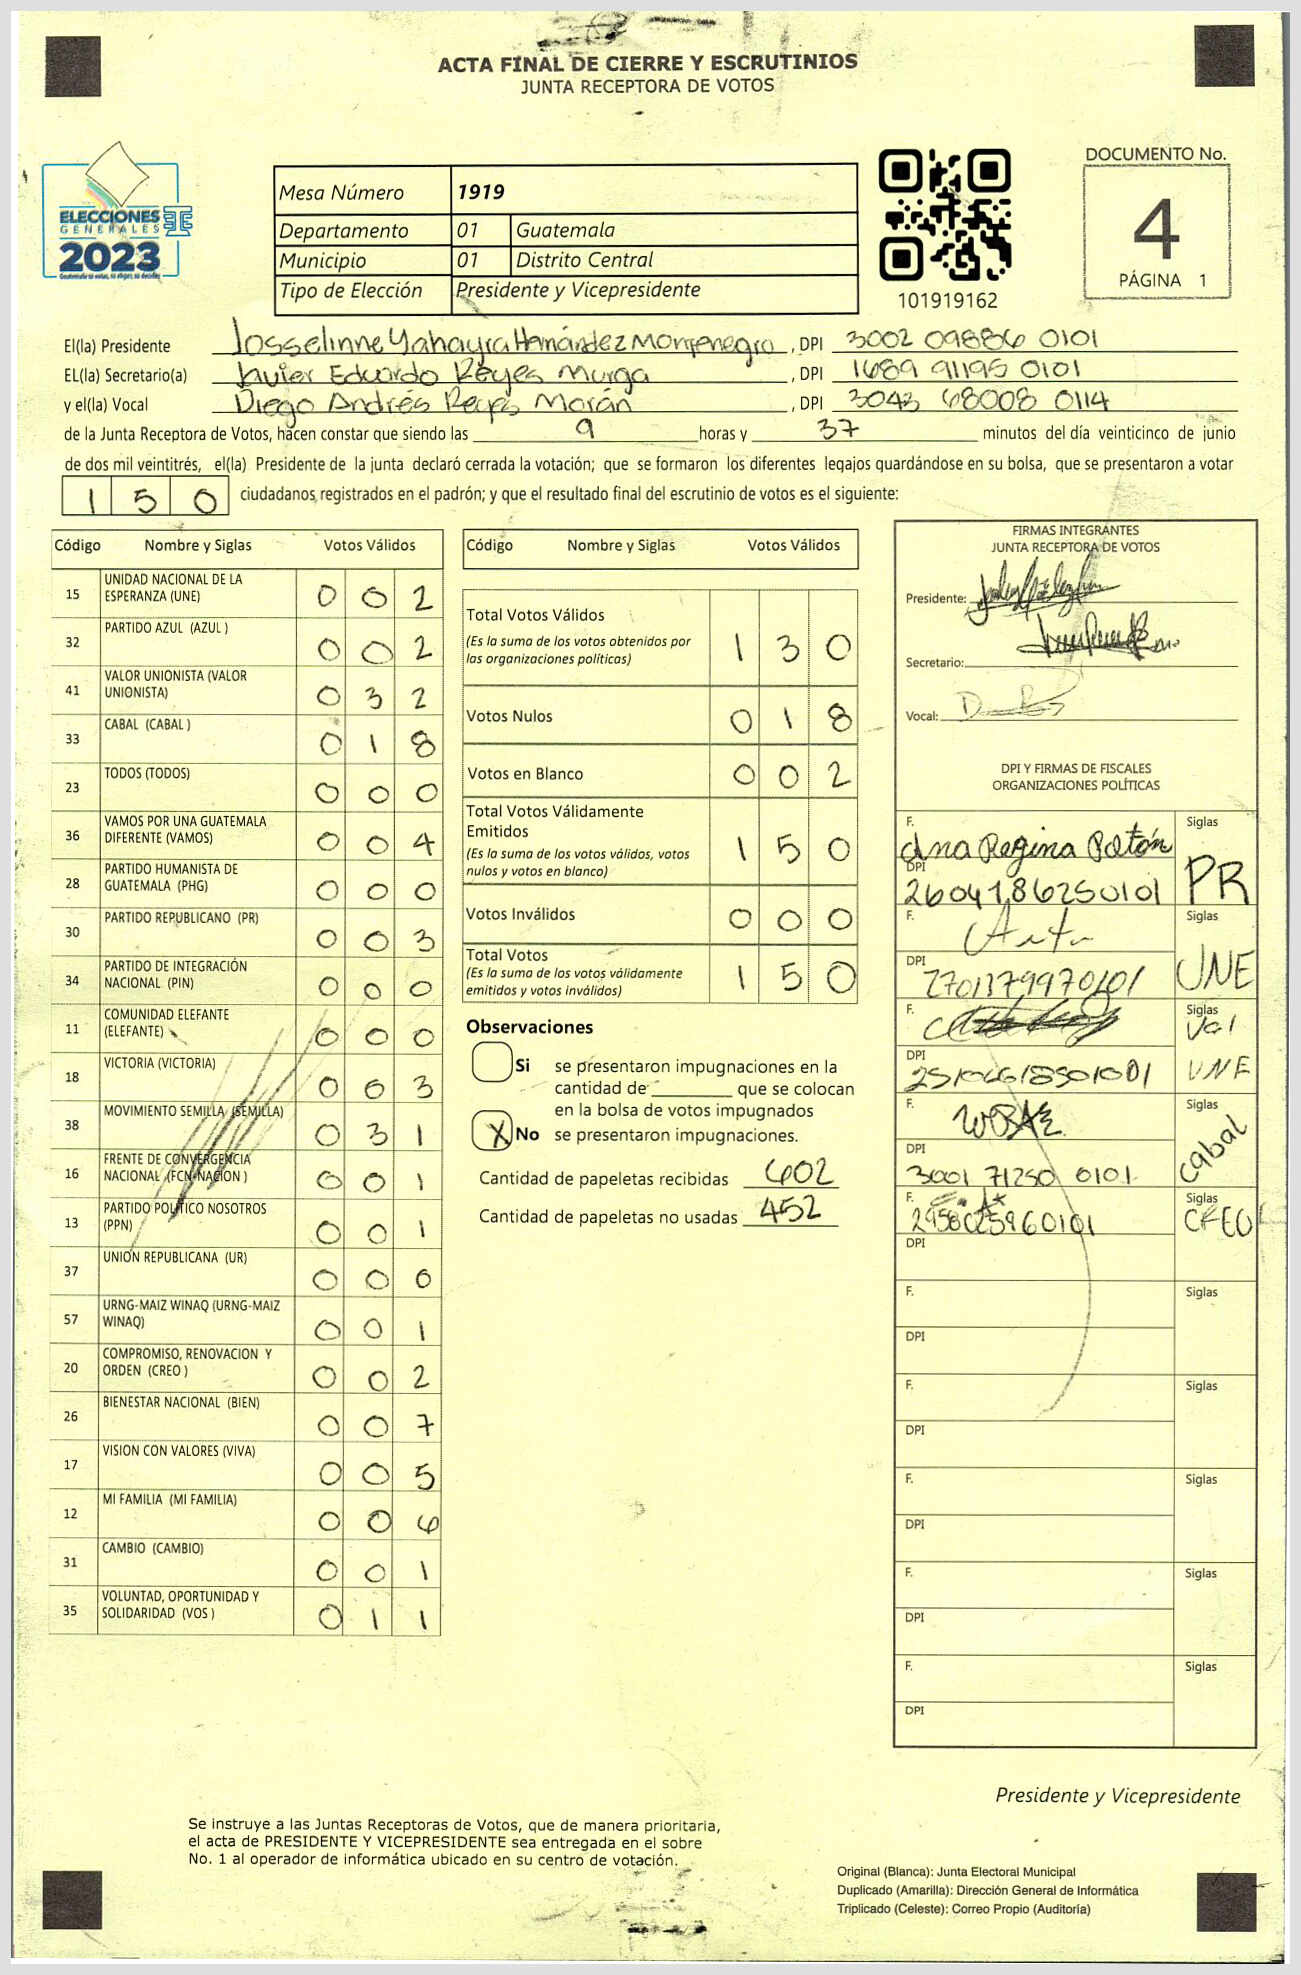 ACTA FINAL DE CIERRE Y ESCRUTINIOS
JUNTA RECEPTORA DE VOTOS
ELECCIONES
GENERALES
2023
Mesa Número 1919
Departamento 01 Guatemala
Municipio 01 Distrito Central
Tipo de Elección Presidente y Vicepresidente
101919162
DOCUMENTO No.
4
PÁGINA 1
El(la) Presidente Josselinne Yahayra Hernández Montenegro, DPI 3002 09886 0101
EL(la) Secretario(a) Javier Eduardo Reyes Murga, DPI 1689 91195 0101
y el(la) Vocal Diego Andrés Reyes Morán, DPI 3043 68008 0114
de la Junta Receptora de Votos, hacen constar que siendo las 9 horas y 37 minutos del día veinticinco de junio
de dos mil veintitrés, el(la) Presidente de la junta declaró cerrada la votación; que se formaron los diferentes legajos quardándose en su bolsa, que se presentaron a votar
150 ciudadanos registrados en el padrón; y que el resultado final del escrutinio de votos es el siguiente:
Código Nombre y Siglas Votos Válidos
15 UNIDAD NACIONAL DE LA ESPERANZA (UNE) 0 0 2
32 PARTIDO AZUL (AZUL ) 0 0 2
41 VALOR UNIONISTA (VALOR UNIONISTA) 0 3 2
33 CABAL (CABAL ) 0 1 8
23 TODOS (TODOS) 0 0 0
36 VAMOS POR UNA GUATEMALA DIFERENTE (VAMOS) 0 0 4
28 PARTIDO HUMANISTA DE GUATEMALA (PHG) 0 0 0
30 PARTIDO REPUBLICANO (PR) 0 0 3
34 PARTIDO DE INTEGRACIÓN NACIONAL (PIN) 0 0 0
11 COMUNIDAD ELEFANTE (ELEFANTE) 0 0 0
18 VICTORIA (VICTORIA) 0 0 3
38 MOVIMIENTO SEMILLA (SEMILLA) 0 3 1
16 FRENTE DE CONVERGENCIA NACIONAL (FCN-NACION ) 0 0 1
13 PARTIDO POLITICO NOSOTROS (PPN) 0 0 1
37 UNION REPUBLICANA (UR) 0 0 0
57 URNG-MAIZ WINAQ (URNG-MAIZ WINAQ) 0 0 1
20 COMPROMISO, RENOVACION Y ORDEN (CREO ) 0 0 2
26 BIENESTAR NACIONAL (BIEN) 0 0 7
17 VISION CON VALORES (VIVA) 0 0 5
12 MI FAMILIA (MI FAMILIA) 0 0 6
31 CAMBIO (CAMBIO) 0 0 1
35 VOLUNTAD, OPORTUNIDAD Y SOLIDARIDAD (VOS ) 0 1 1
Código Nombre y Siglas Votos Válidos
Total Votos Válidos 1 3 0
(Es la suma de los votos obtenidos por
las organizaciones políticas)
Votos Nulos 0 1 8
Votos en Blanco 0 0 2
Total Votos Válidamente
Emitidos 1 5 0
(Es la suma de los votos válidos, votos
nulos y votos en blanco)
Votos Inválidos 0 0 0
Total Votos 1 5 0
(Es la suma de los votos válidamente
emitidos y votos inválidos)
Observaciones
Si se presentaron impugnaciones en la
cantidad de que se colocan
en la bolsa de votos impugnados
X No se presentaron impugnaciones.
Cantidad de papeletas recibidas 602
Cantidad de papeletas no usadas 452
FIRMAS INTEGRANTES
JUNTA RECEPTORA DE VOTOS
Presidente:
Secretario:
Vocal:
DPI Y FIRMAS DE FISCALES
ORGANIZACIONES POLÍTICAS
F. Ana Regina Patán Siglas
DPI 2604186250101 PR
F. Siglas
DPI 2701379970101 UNE
F. Siglas Val
DPI UNE
F. Siglas
DPI 3001 71250 0101 Cabal
F. Siglas
2958025960101 CREO
DPI
F. Siglas
DPI
F. Siglas
DPI
F. Siglas
DPI
F. Siglas
DPI
F. Siglas
DPI
Presidente y Vicepresidente
Se instruye a las Juntas Receptoras de Votos, que de manera prioritaria,
el acta de PRESIDENTE Y VICEPRESIDENTE sea entregada en el sobre
No. 1 al operador de informática ubicado en su centro de votación.
Original (Blanca): Junta Electoral Municipal
Duplicado (Amarilla): Dirección General de Informática
Triplicado (Celeste): Correo Propio (Auditoría)